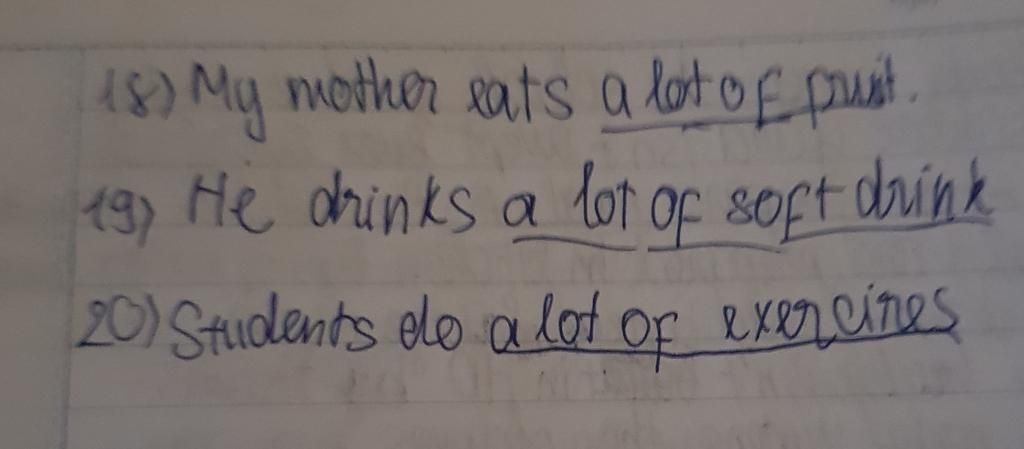 18) My mother eats a lot of fruit.
19) He drinks a lot of soft drink
20) Students do a lot of exercises